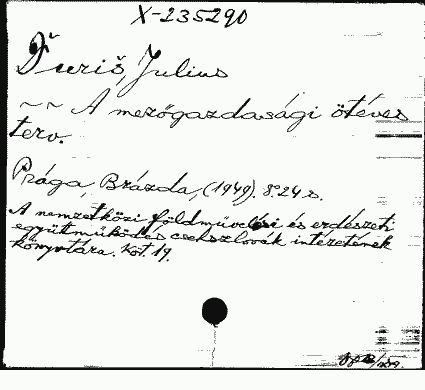 X-235290
Ďuriš, Julius
~~ A mezőgazdasági ötéves
terv.
Prága, Brázda, (1949). 8° 24 s.
A nemzetközi földmüvelési és erdészeti
együttmüködés csehszlovák intézetének
könyvtára. Köt. 19.